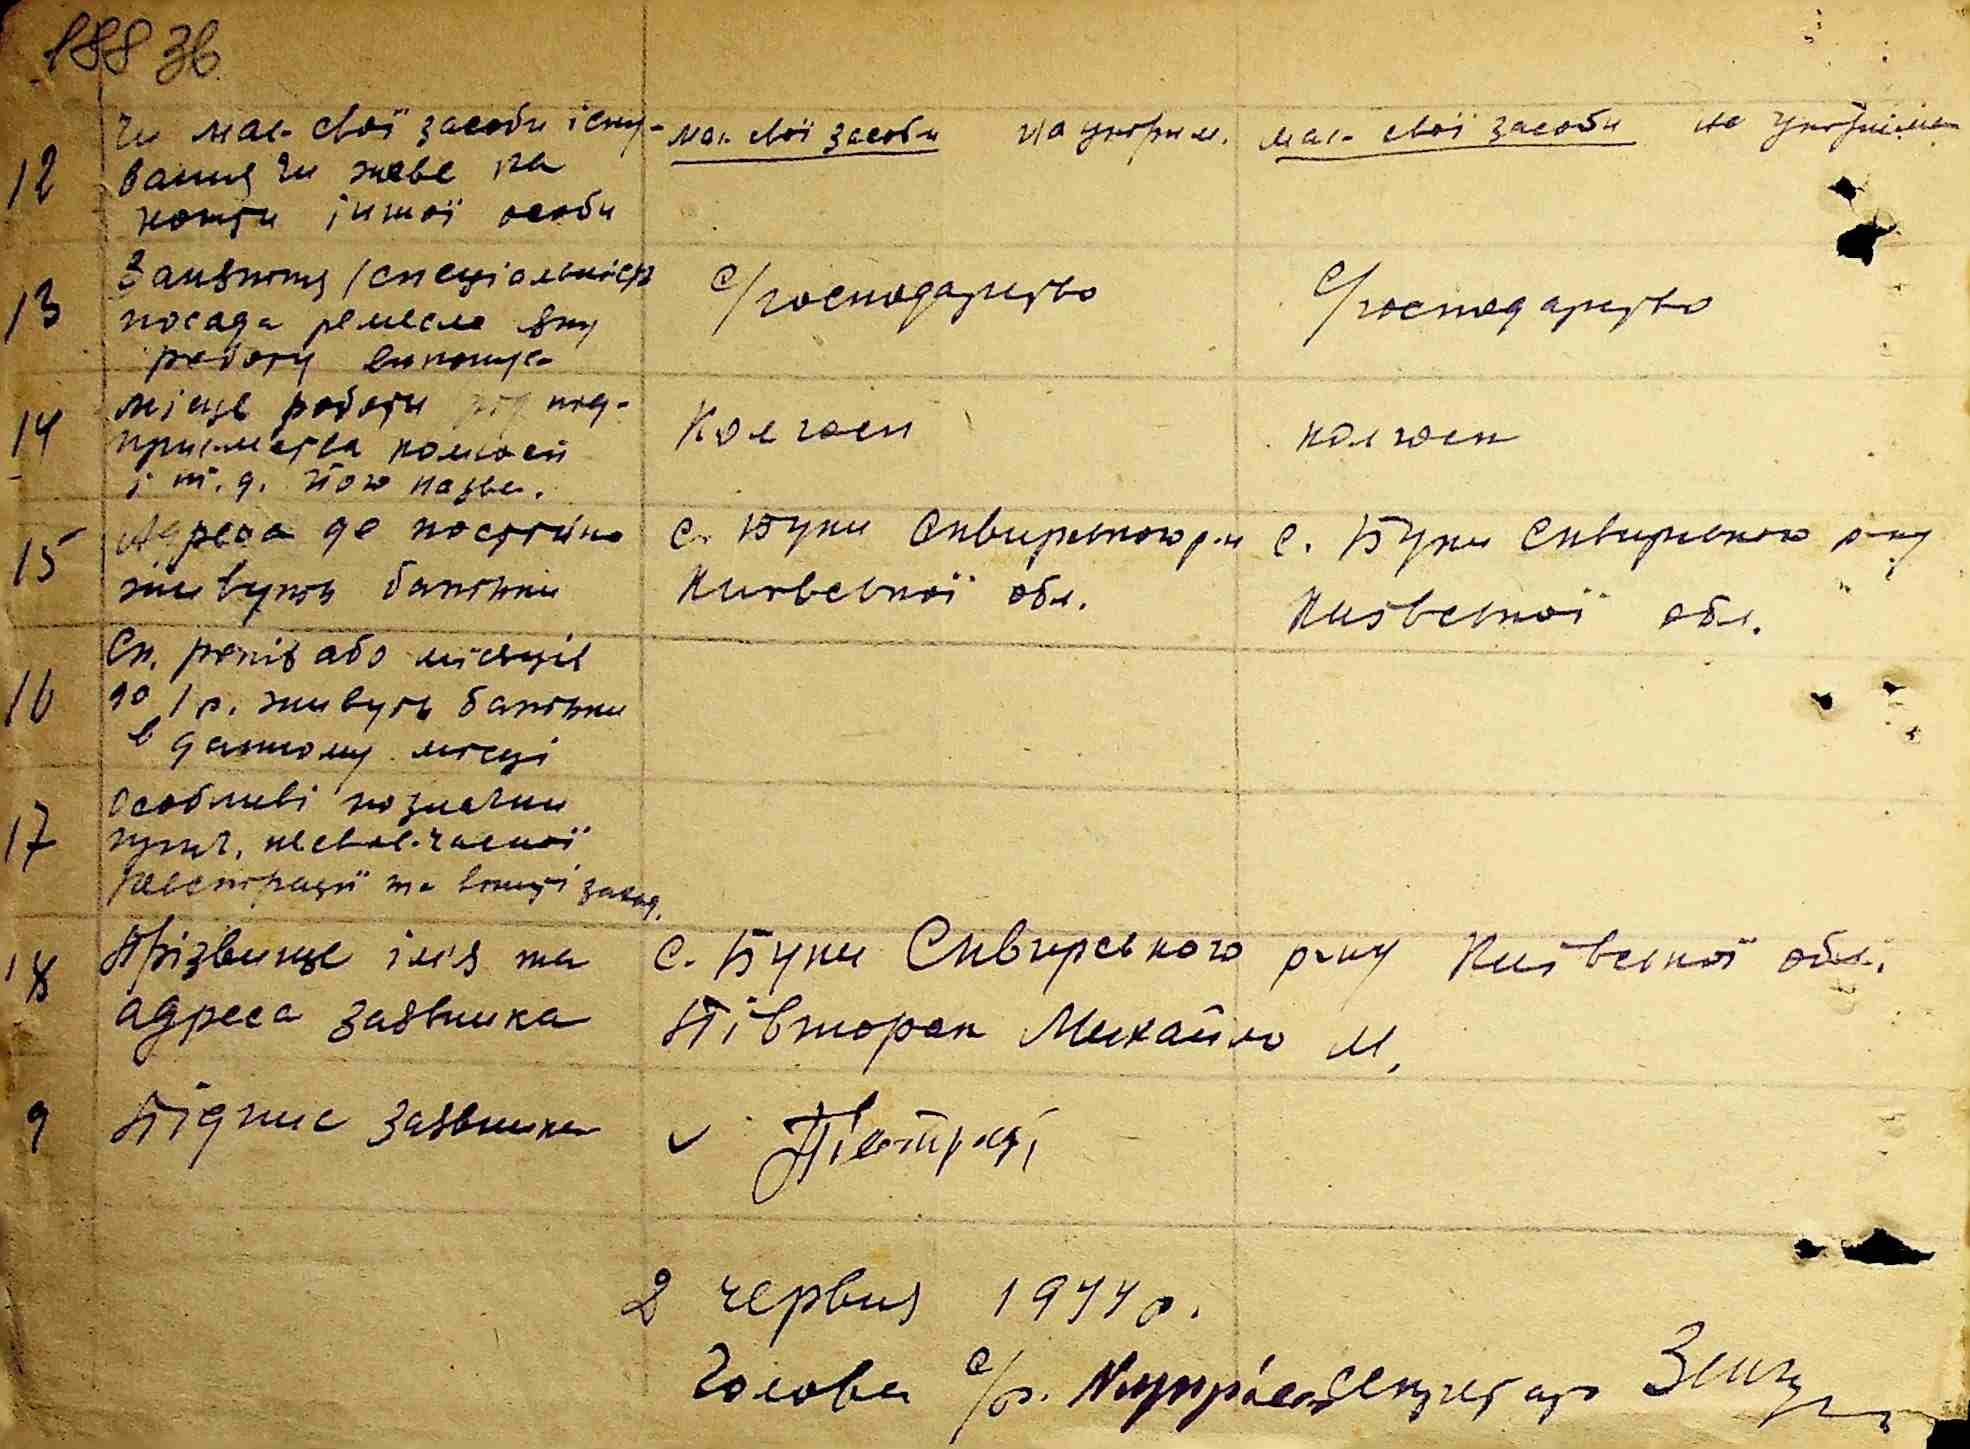 188 зв
12 Чи має свої засоби існу- має свої засоби на утрим. має свої засоби на утриман
вання чи живе на
кошти іншої особи
13 Заняття /спеціальність с/господарство с/господарство
посада ремесло яку
роботу виконує
14 місце роботи під- Колгосп колгосп
приємства колгосп
і т. д. його назва.
15 Адреса де постійно с. Буки Сквирського р-н с. Буки Сквирського р-ну
живуть батьки Київської обл. Київської обл.
16 Ск. років або місяців
до 1 р. живуть батьки
в данному місці
17 Особливі позначки
несвоєчасної
реєстрації та
18 Прізвище ім'я та с. Буки Сквирського р-ну Київської обл.
адреса заявника Півторак Михайло М.
9 Підпис заявника
2 червня 1944 р.
Голова с/р. секретар